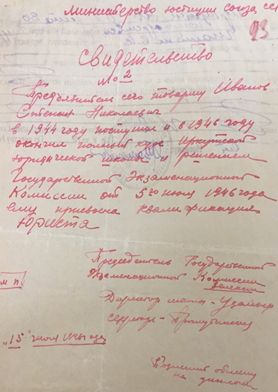 Министерство юстиции союза сср
93
Свидетельство
№ 2
Предъявитель сего товарищ Иванов
Николаевич
в 1944 году поступил и в 1946 году
окончил полный курс Иркутской
юридической школы и решением
Государственной Экзаменационной
Комиссии от 5го июля 1946 года
ему присвоена квалификация
Юриста
Председатель Государственной
Экзаменационной Комиссии
Директор школы
Секретарь
"15" июля 1946 года
Подлежит обмену
на диплом